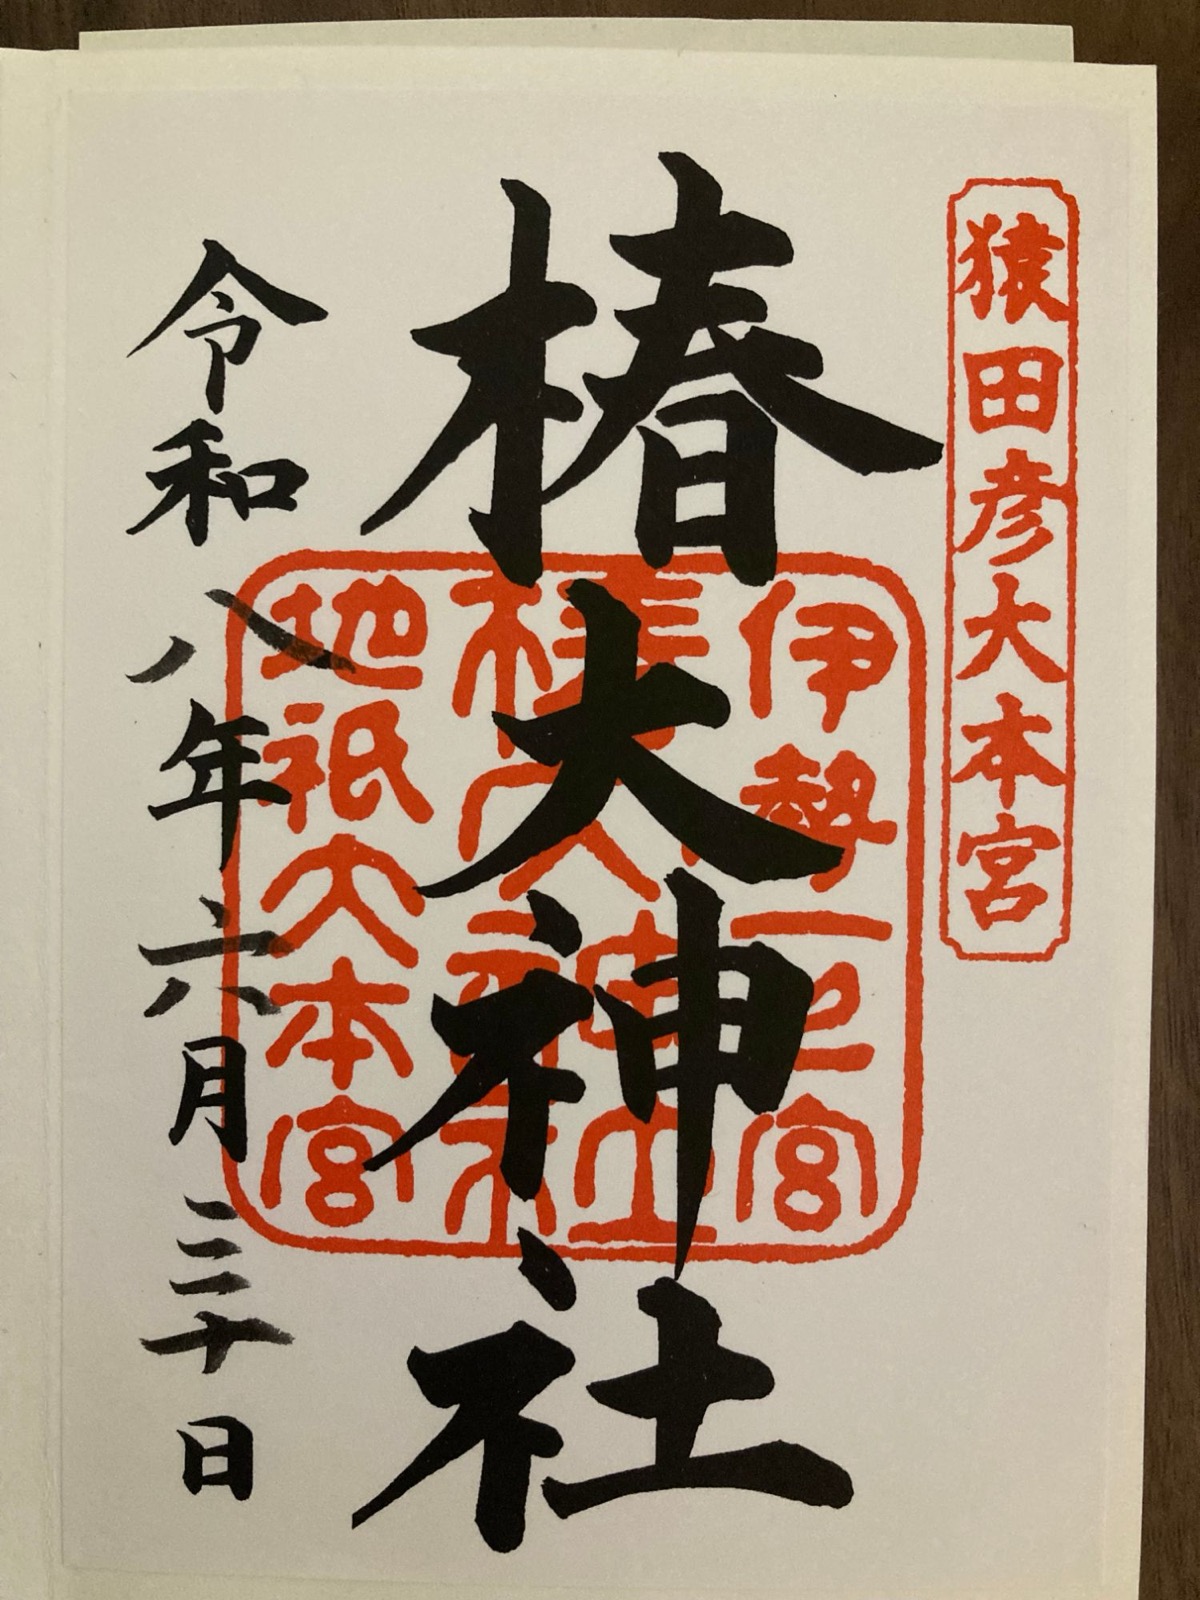 猿田彦大本宮
椿大神社
伊勢一之宮
椿大神社
地祇大本宮
令和八年六月三十日